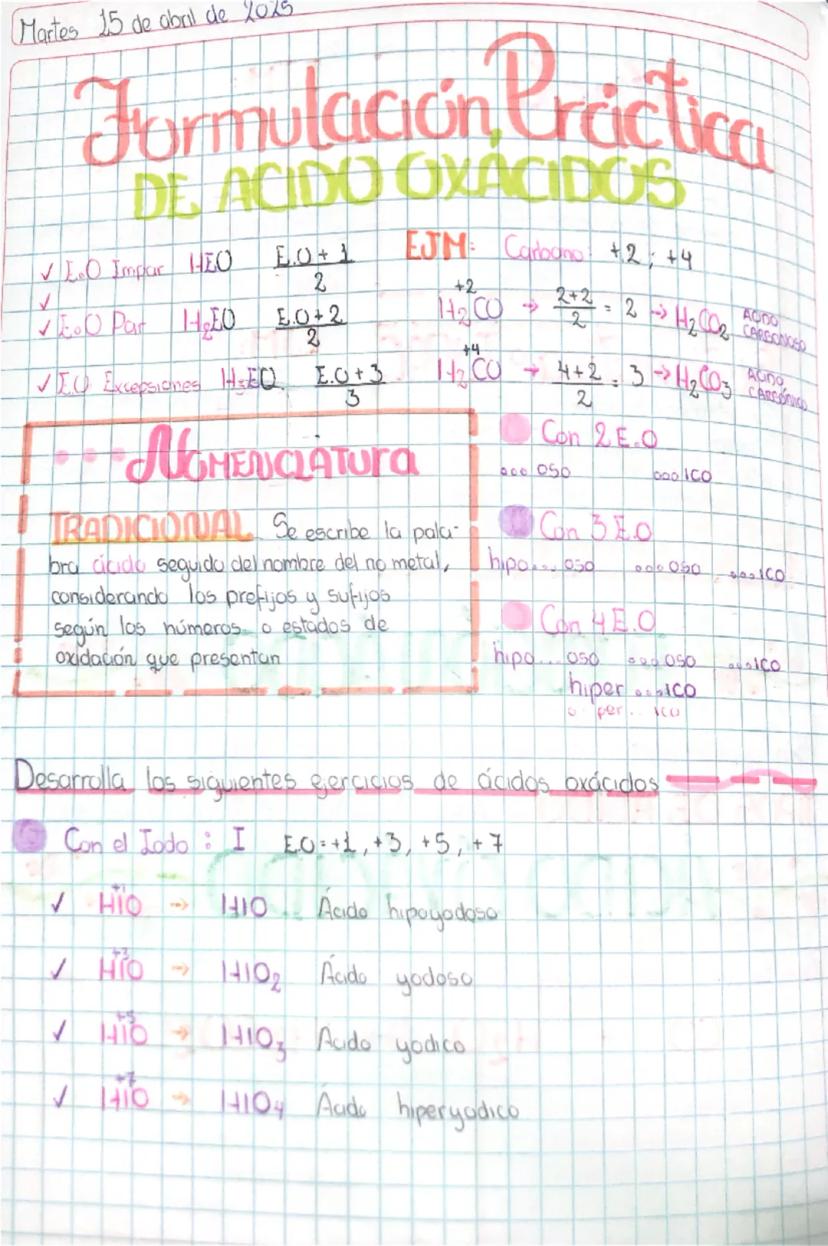 Martes 15 de abril de 2025
Formulación Práctica
DE ACIDO OXÁCIDOS
✓ E.O Impar HEO E.O+1/2
EJM: Carbono: +2; +4
✓
✓ E.O Par H₂EO E.O+2/2
+2
H₂CO → 2+2/2 = 2 → H₂CO₂ ACIDO CARBONOSO
✓ E.O Excepsiones H₃EO E.O+3/3
+4
H₂CO → 4+2/2 = 3 → H₂CO₃ ACIDO CARBÓNICO
NOMENCLATURA
TRADICIONAL Se escribe la pala-
bra ácido seguido del nombre del no metal,
considerando los prefijos y sufijos
según los números o estados de
oxidación que presentan
Con 2 E.O
... oso ... ico
Con 3 E.O
hipo... oso ... oso ... ico
Con 4 E.O
hipo... oso ... oso ... ico
hiper ... ico
o per... ico
Desarrolla los siguientes ejercicios de ácidos oxácidos
Con el Iodo: I E.O=+1, +3, +5, +7
+1
✓ HIO → HIO Ácido hipoyodoso
+3
✓ HIO → HIO₂ Ácido yodoso
+5
✓ HIO → HIO₃ Acido yodico
+7
✓ HIO → HIO₄ Ácido hiperyodico